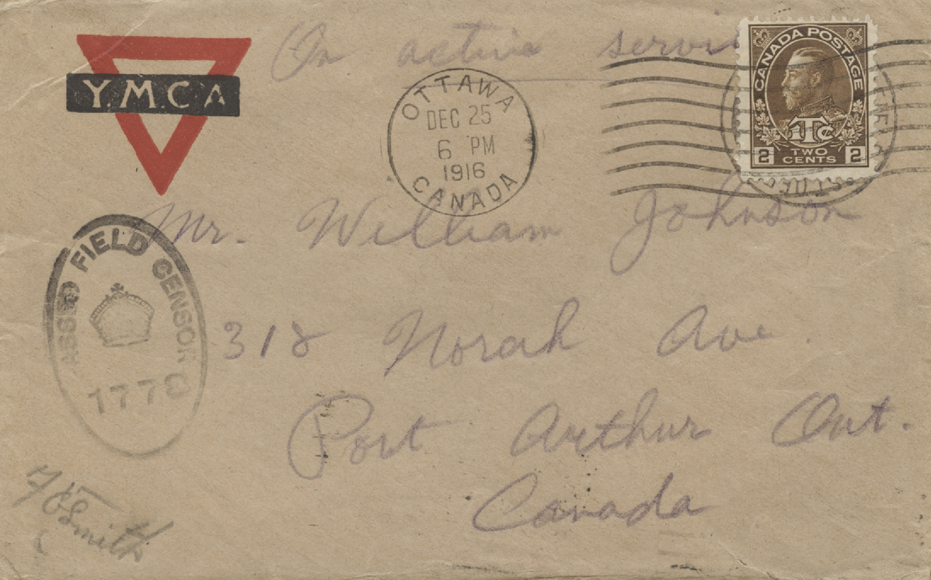 On active servi
Y.M.C.A
OTTAWA
DEC 25
6 PM
1916
CANADA
CANADA POSTAGE
1Tc
2 TWO CENTS 2
Mr. William Johnson
ASSED FIELD CENSOR
1778
318 Norah Ave
Port Arthur Ont.
Canada
Smith